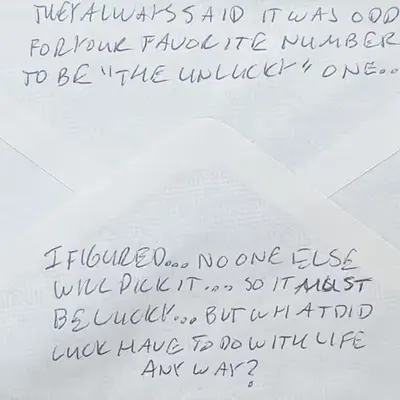 THEY ALWAYS SAID IT WAS ODD
FOR YOUR FAVORITE NUMBER
TO BE "THE UNLUCKY" ONE...
I FIGURED... NO ONE ELSE
WILL PICK IT... SO IT MUST
BE LUCKY... BUT WHAT DID
LUCK HAVE TO DO WITH LIFE
ANY WAY?